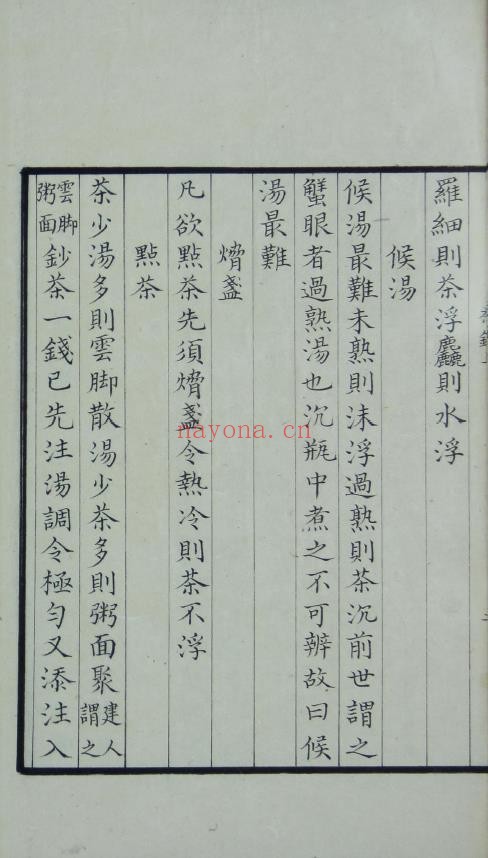 羅細則茶浮麤則水浮
候湯
候湯最難未熟則沫浮過熟則茶沉前世謂之
蟹眼者過熟湯也沉瓶中煮之不可辨故曰候
湯最難
熁盞
凡欲點茶先須熁盞令熱冷則茶不浮
點茶
茶少湯多則雲脚散湯少茶多則粥面聚建人謂之
雲脚粥面鈔茶一錢已先注湯調令極勻又添注入
nayona.cn